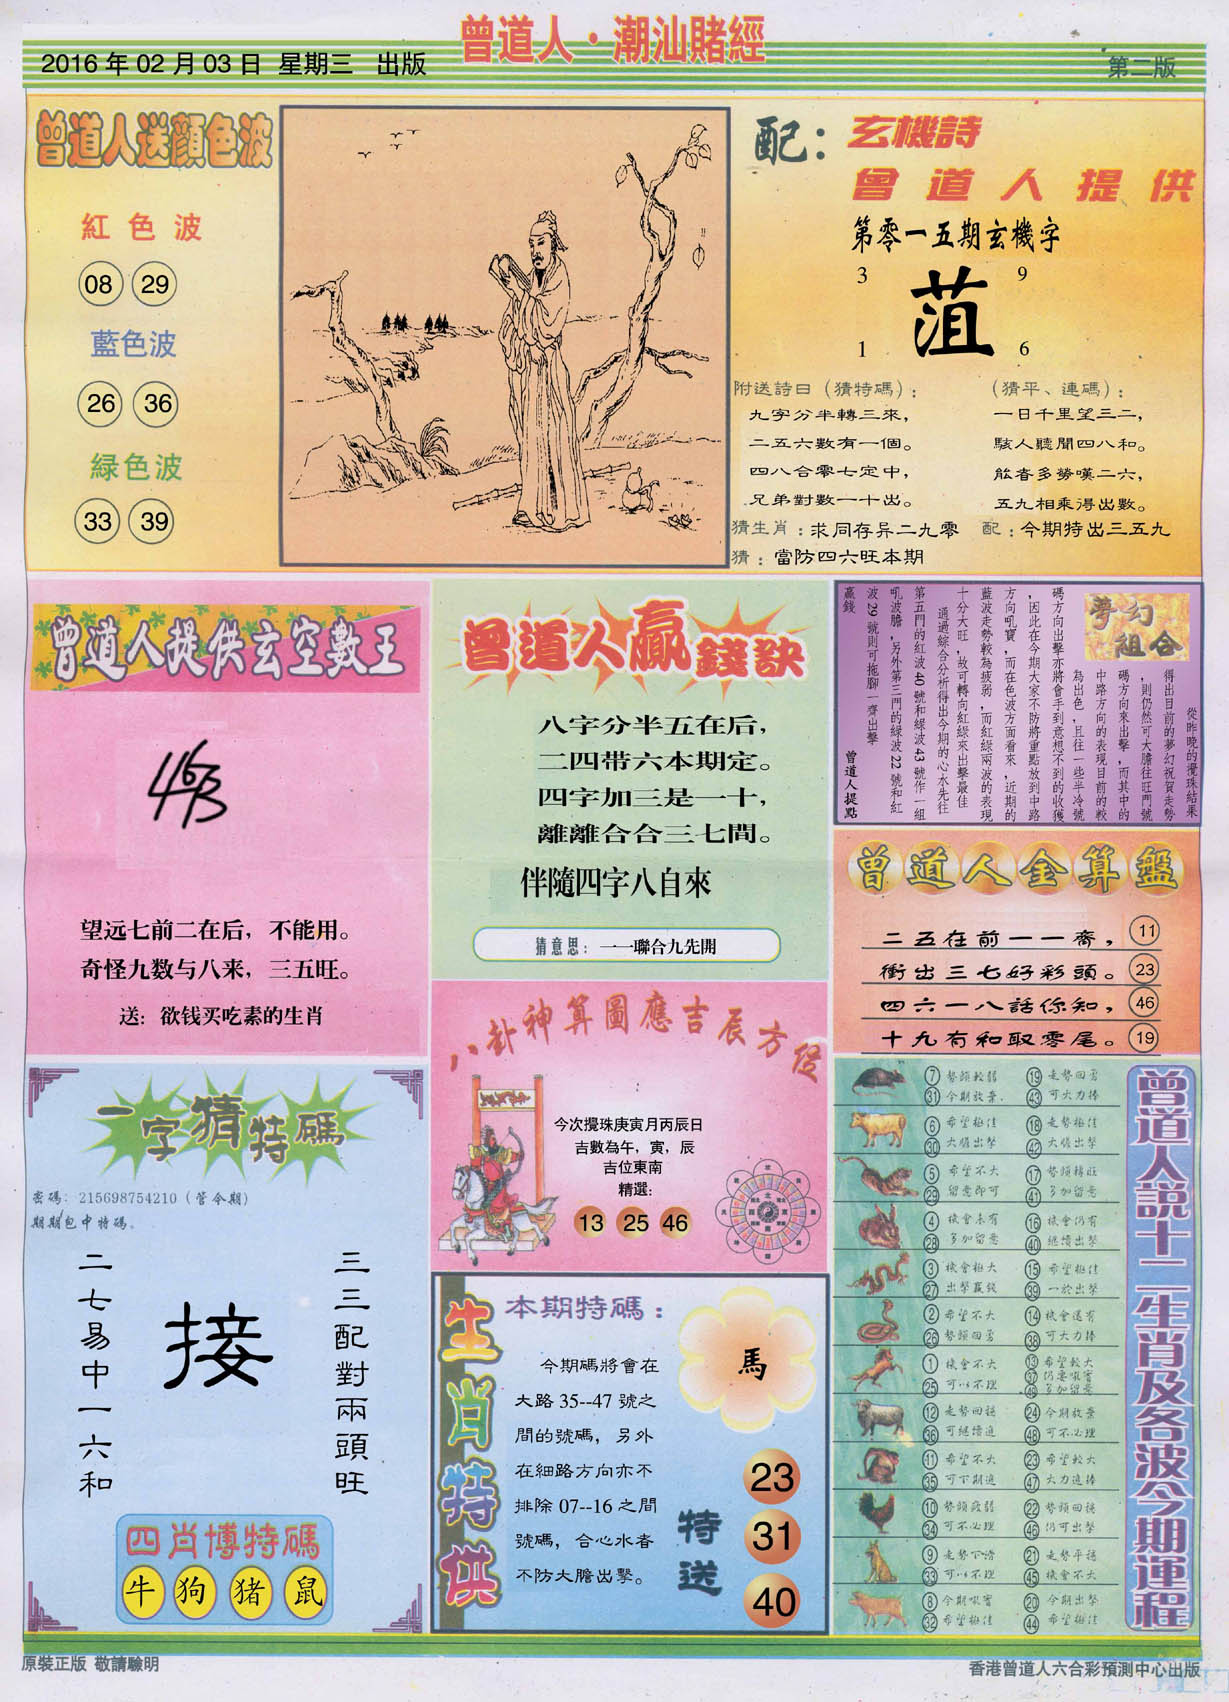 曾道人·潮汕賭經
2016 年 02 月 03 日 星期三 出版
第二版
曾道人送顏色波
紅色波
08 29
藍色波
26 36
綠色波
33 39
配：
玄機詩
曾道人提供
第零一五期玄機字
3 9
菹
1 6
附送詩日（猜特碼）：
九字分半轉三來，
二五六數有一個。
四八合零七定中，
兄弟對數一十出。
（猜平、連碼）：
一日千里望三二，
駭人聽聞四八和。
能者多勞嘆二六，
五九相乘得出數。
猜生肖：求同存异二九零
配：今期特出三五九
猜：當防四六旺本期
曾道人提供玄空數王
463
望远七前二在后，不能用。
奇怪九数与八来，三五旺。
送：欲钱买吃素的生肖
曾道人贏錢訣
八字分半五在后，
二四带六本期定。
四字加三是一十，
離離合合三七間。
伴隨四字八自來
猜意思：一一聯合九先開
夢幻組合
從昨晚的攪珠結果
得出目前的夢幻祝賀走勢
，則仍然可大膽往旺門號
碼方向來出擊，而其中的
中路方向的表現目前的較
為出色，且往一些半冷號
碼方向出擊亦將會手到意想不到的收獲
，因此在今期大家不防將重點放到中路
方向吼寶，而在色波方面看來，近期的
藍波走勢較為疲弱，而紅綠兩波的表現
十分大旺，故可轉向紅綠來出擊最佳
通過綜合分析得出今期的心水先往
第五門的紅波 40 號和綠波 43 號作一組
吼波膽，另外第三門的綠波 22 號和紅
波 29 號則可拖腳一齊出擊
贏錢
曾道人提點
曾道人金算盤
二五在前一一齊， 11
衝出三七好彩頭。 23
四六一八話你知， 46
十九有和取零尾。 19
八卦神算圖應吉辰方位
今次攪珠庚寅月丙辰日
吉數為午，寅，辰
吉位東南
精選：
13 25 46
一字猜特碼
密碼：215698754210（管令期）
期期包中特碼。
三三配對兩頭旺
接
二七易中一六和
四肖博特碼
牛 狗 猪 鼠
生肖特供
本期特碼：
今期碼將會在
大路 35--47 號之
間的號碼，另外
在細路方向亦不
排除 07--16 之間
號碼，合心水者
不防大膽出擊。
馬
特送
23
31
40
曾道人說十二生肖及各波今期運程
7 勢頭較弱 19 走勢回勇
31 今期放棄 43 可大力捧
6 希望極佳 18 走勢極佳
30 大膽出擊 42 大膽出擊
5 希望不大 17 勢頭轉旺
29 留意即可 41 多加留意
4 機會未有 16 機會仍有
28 多加留意 40 繼續出擊
3 機會極大 15 希望極佳
27 出擊贏錢 39 一於出擊
2 希望不大 14 機會還有
26 勢頭回勇 38 可大力捧
1 機會不大 13 希望較大
25 可以不理 37 仍要吼實
49 多加留意
12 走勢回穩 24 今期放棄
36 可繼續追 48 可不必理
11 希望不大 23 希望較大
35 可下期追 47 大力追捧
10 勢頭疲弱 22 勢頭回穩
34 可不必理 46 仍可出擊
9 走勢下滑 21 走勢平穩
33 可以不理 45 機會不大
8 今期吼實 20 今期出擊
32 希望極佳 44 希望極佳
原裝正版 敬請驗明
香港曾道人六合彩預測中心出版